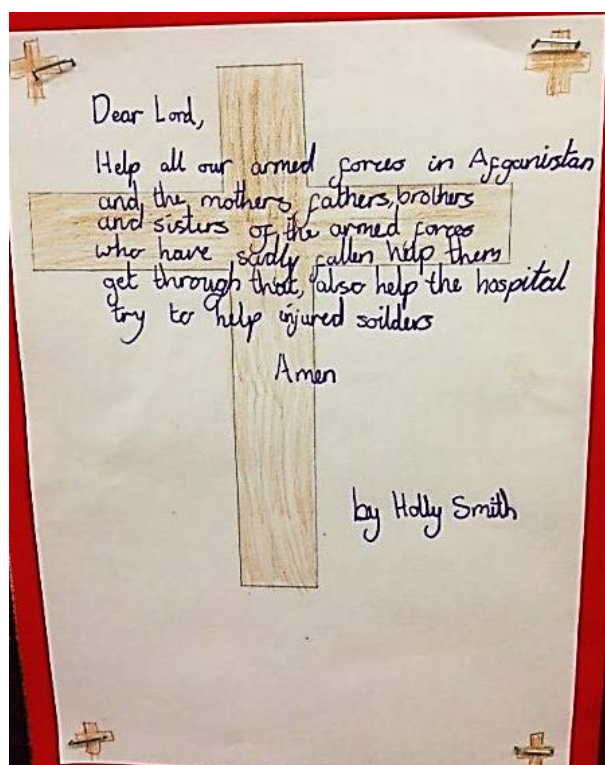 Dear Lord,
Help all our armed forces in Afganistan
and the mothers, fathers, brothers
and sisters of the armed forces
who have sadly fallen help them
get through that, also help the hospital
try to help injured soilders
Amen
by Holly Smith